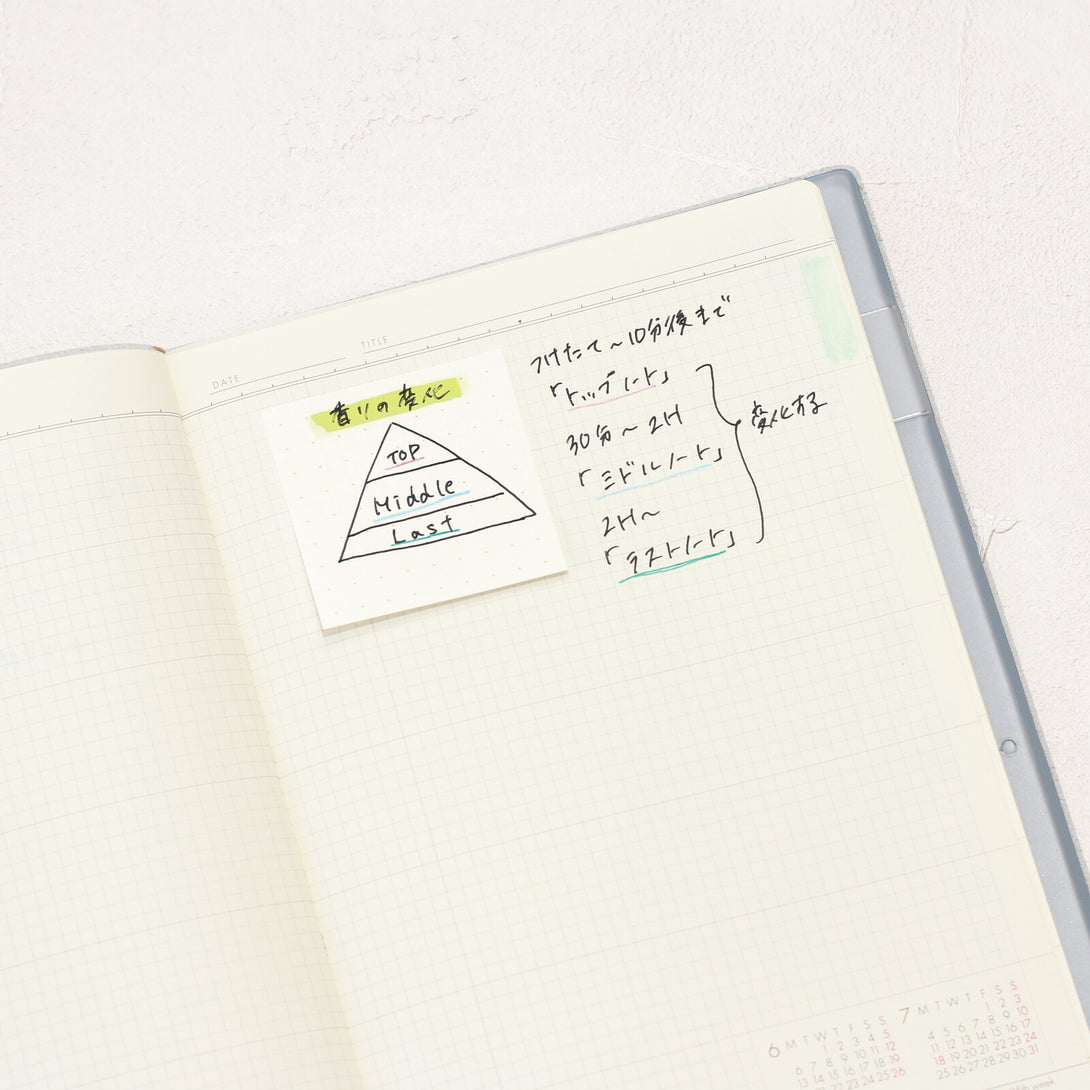 DATE
TITLE
香りの変化
TOP
Middle
Last
つけたて~10分後まで
「トップノート」
30分~2H
「ミドルノート」
2H~
「ラストノート」
変化する
6 M T W T F S S
1 2 3 4 5
6 7 8 9 10 11 12
13 14 15 16 17 18 19
26
7 M T W T F S S
1 2 3
4 5 6 7 8 9 10
11 12 13 14 15 16 17
18 19 20 21 22 23 24
25 26 27 28 29 30 31